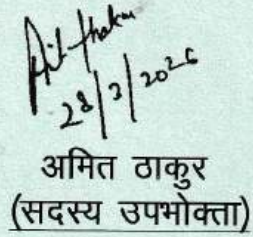 Amit Thakur
28/3/2026
अमित ठाकुर
(सदस्य उपभोक्ता)